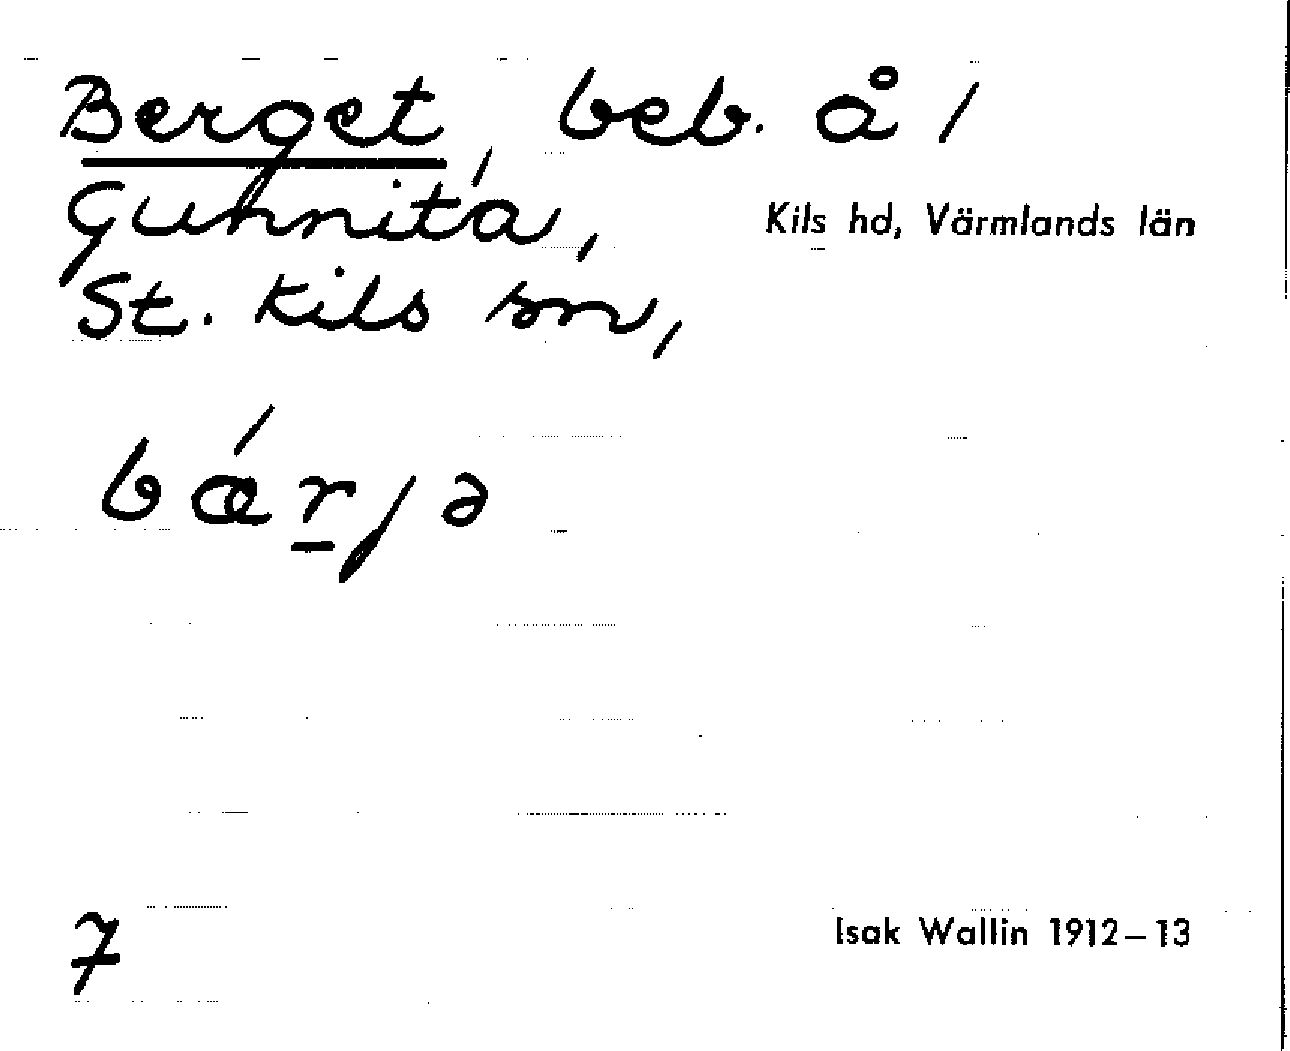 Berget, beb. å /
Gunnita,
Kils hd, Värmlands län
St. Kils sn,
bǽr̲jə
7
Isak Wallin 1912–13